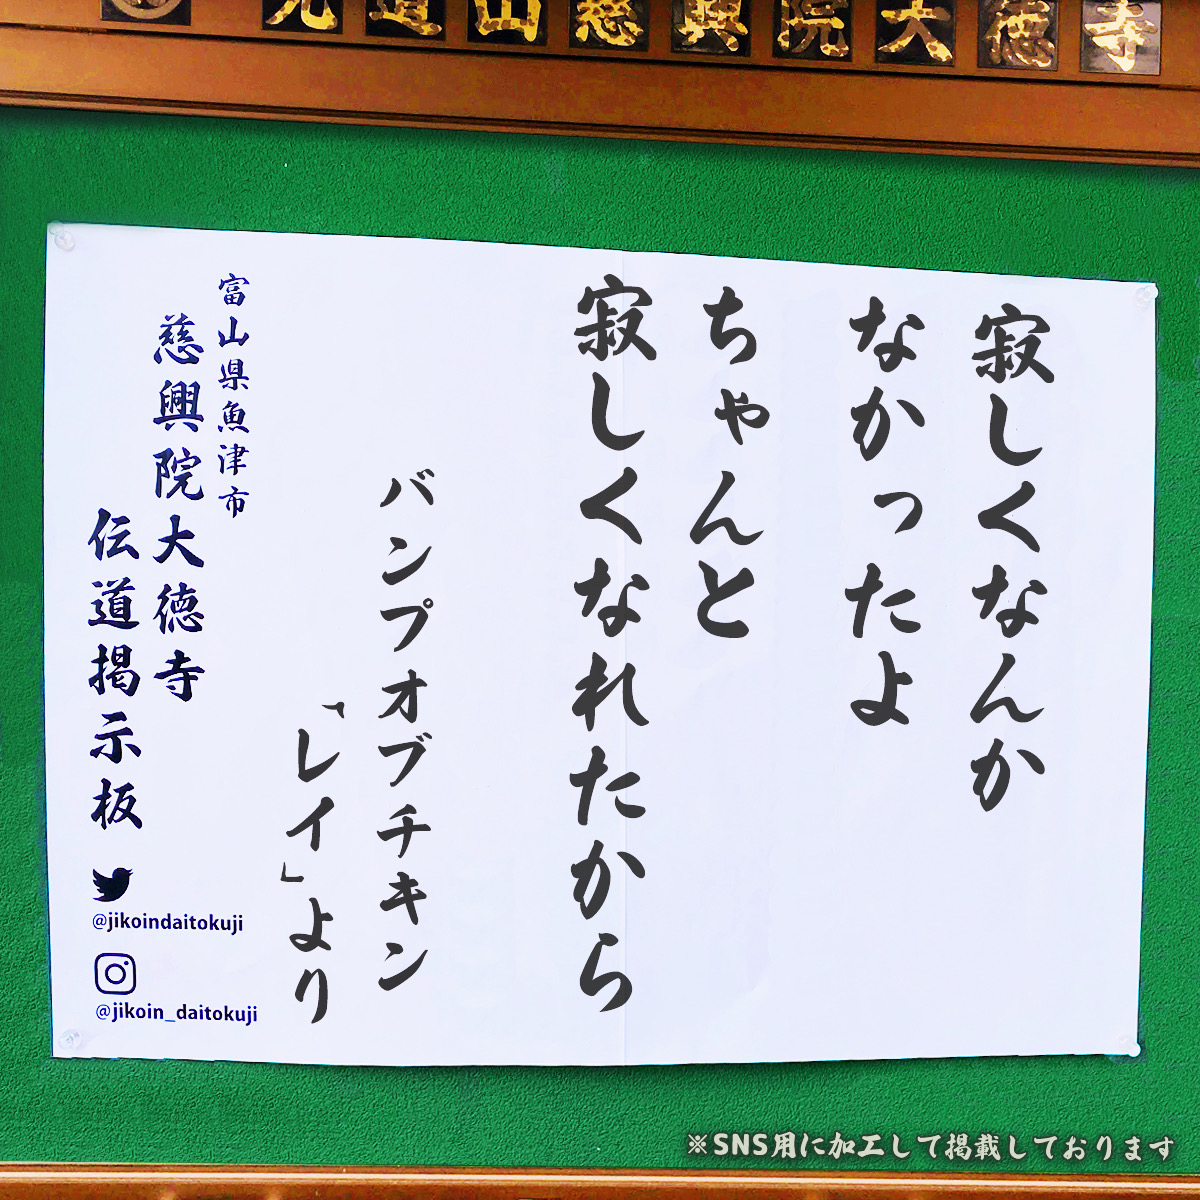 光道山慈興院大徳寺
寂しくなんか
なかったよ
ちゃんと
寂しくなれたから
バンプオブチキン
「レイ」より
富山県魚津市
慈興院大徳寺
伝道掲示板
@jikoindaitokuji
@jikoin_daitokuji
※SNS用に加工して掲載しております